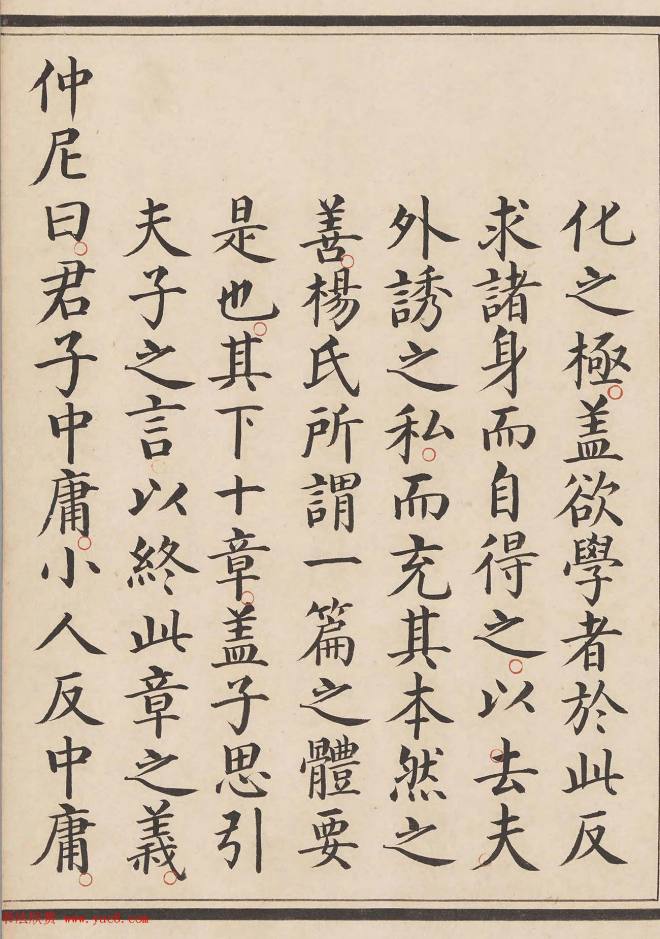 化之極盖欲學者於此反
求諸身而自得之以去夫
外誘之私而充其本然之
善楊氏所謂一篇之體要
是也其下十章盖子思引
夫子之言以終此章之義
仲尼曰君子中庸小人反中庸
书法欣赏 www.yac8.com